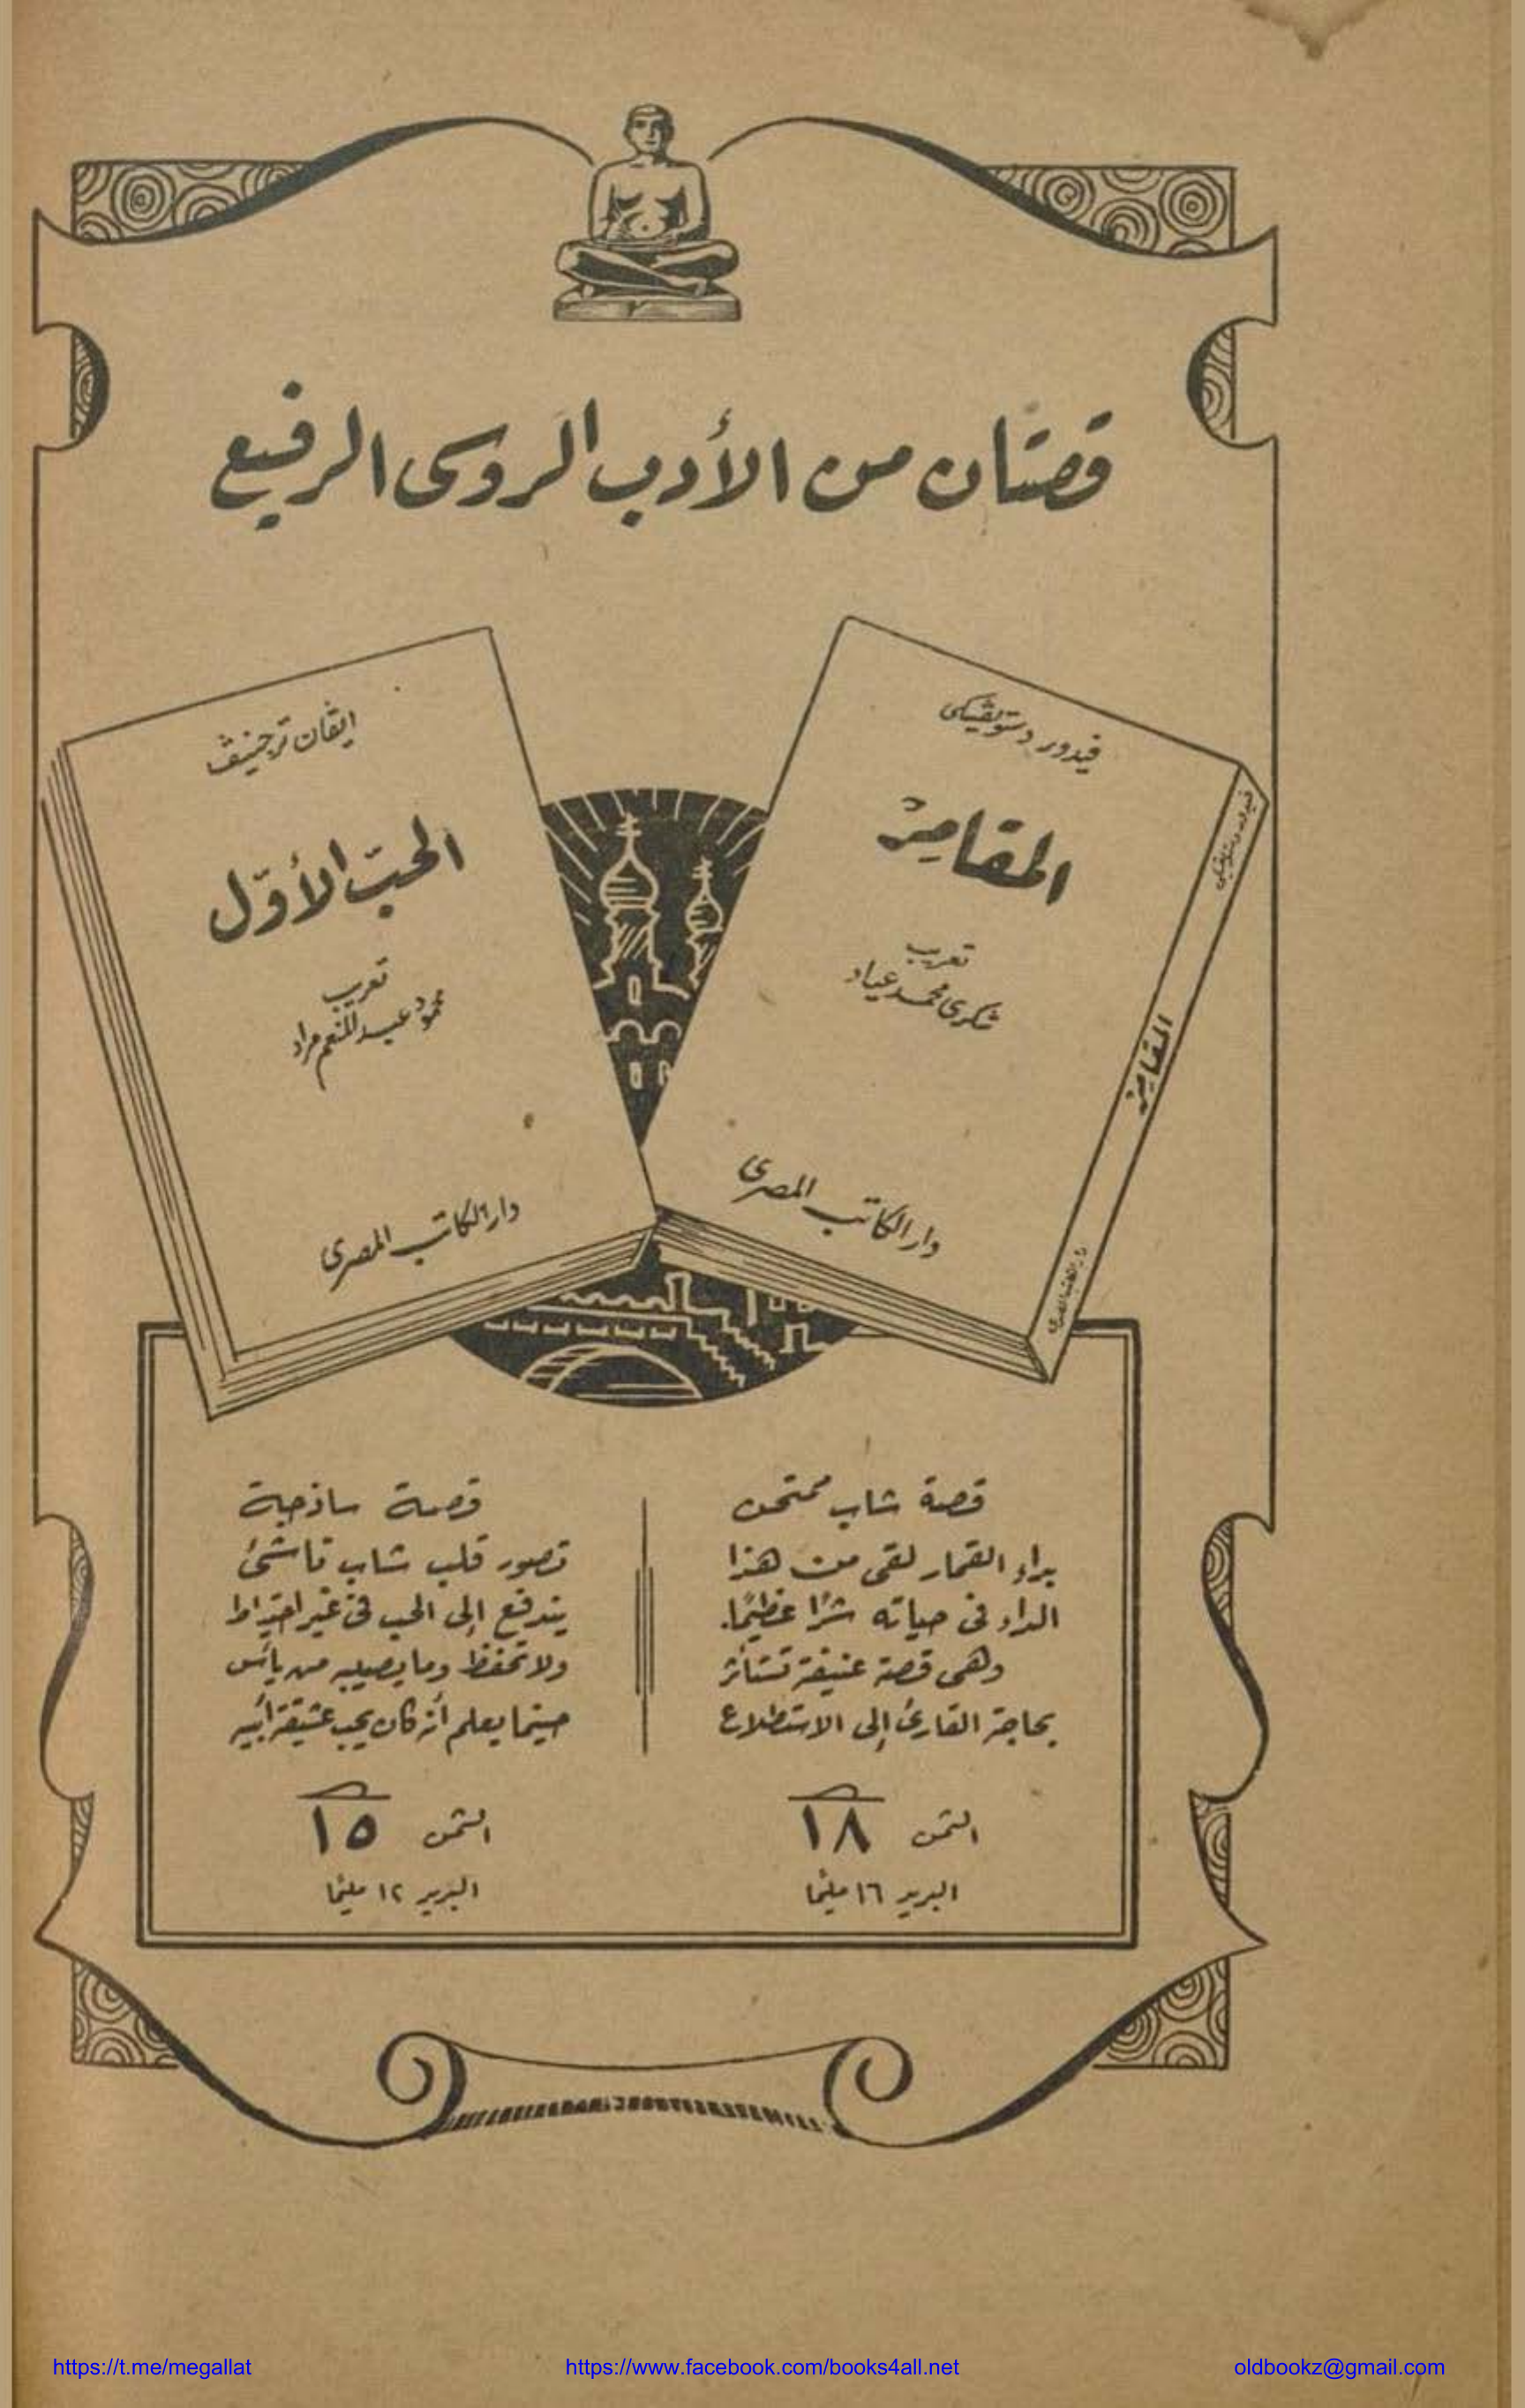 قصتان من الأدب الروسى الرفيع
فيدور دستويڤسكى
المقامر
تعريب
شكرى محمد عياد
دار الكاتب المصرى
فيدور دستويڤسكى
المقامر
دار الكاتب المصرى
ايڤان ترجنيڤ
الحبّ الأوّل
تعريب
محمود عبد المنعم مراد
دار الكاتب المصرى
قصة شاب ممتحن
بداء القمار لقى من هذا
الداء فى حياته شرًا عظيمًا.
وهى قصة عنيفة تستأثر
بحاجة القارئ إلى الاستطلاع
الثمن ١٨
البريد ١٦ مليمًا
قصة ساذجة
تصور قلب شاب ناشئ
يندفع إلى الحب فى غير احتياط
ولا تحفظ وما يصيبه من يأس
حينما يعلم أنه كان يحب عشيقة أبيه
الثمن ١٥
البريد ١٢ مليمًا
https://t.me/megallat
https://www.facebook.com/books4all.net
oldbookz@gmail.com